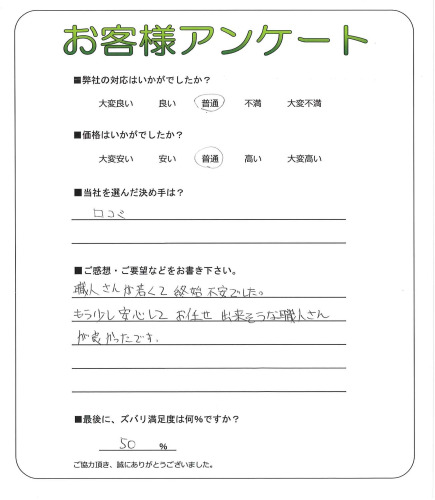 お客様アンケート
■弊社の対応はいかがでしたか？
大変良い 良い 普通 不満 大変不満
■価格はいかがでしたか？
大変安い 安い 普通 高い 大変高い
■当社を選んだ決め手は？
口コミ
■ご感想・ご要望などをお書き下さい。
職人さんが若くて終始不安でした。
もう少し安心してお任せ出来そうな職人さん
が良かったです.
■最後に、ズバリ満足度は何%ですか？
50 %
ご協力頂き、誠にありがとうございました。